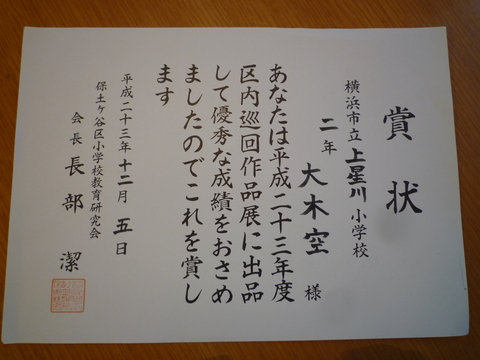 賞状
横浜市立上星川小学校
二年 大木空 様
あなたは平成二十三年度
区内巡回作品展に出品
して優秀な成績をおさめ
ましたのでこれを賞し
ます
平成二十三年十二月五日
保土ケ谷区小学校教育研究会
会長 長部 潔